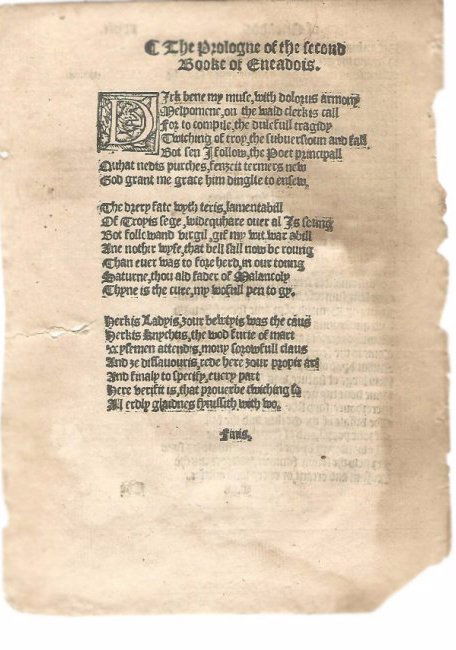 ☾ The Prologne of the second
Booke of Eneados.
DIrk bene my muse, with dolorus armony
Melpomene, on the wald clerkis call
For to compile, the dulefull tragidy
Twiching of troy, the subuersioun and fall
Bot sen I follow, the Poet principall
Quhat nedis purches, fenzeit termers new
God grant me grace him dinglie to ensew.
The drery fate wyth teris, lamentabill
Of Troyis sege, widequhare ouer al Is soung
Bot followand virgil, gif my wit war abill
Ane nother wyse, that bell sall now be roung
Than euer was to fore herd, in our toung
Saturne, thou ald fader of Malancoly
Thyne is the cure, my wofull pen to gy.
Herkis Ladyis, zour bewtyis was the caus
Herkis knychtis, the wod furie of mart
wysemen attendis, mony sorowfull claus
And ze dissauouris, rede here zour propir art
And finaly to specify, euery part
Here verifit is, that prouerbe twiching so
Al erdly glaidnes fynissith with wo.
Finis.